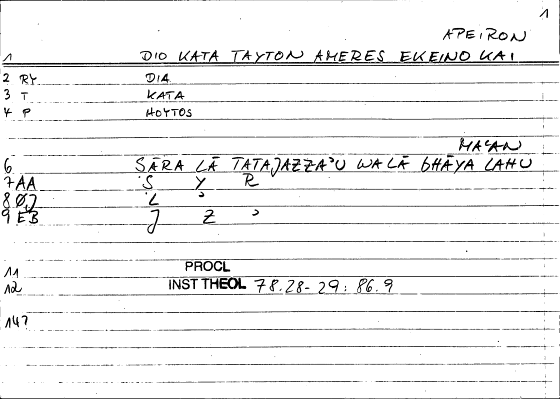 1
APEIRON
1 DIO KATA TAYTON AMERES EKEINO KAI
2 RY DIA
3 T KATA
4 P HOYTOS
MACAN
6 ṢĀRA LĀ TATAJAZZA'U WA LĀ GHĀYA LAHU
7 AA Ṣ Y R
8 ØJ L '
9 EB J Z '
11 PROCL
12 INST THEOL 78.28-29: 86.9
147